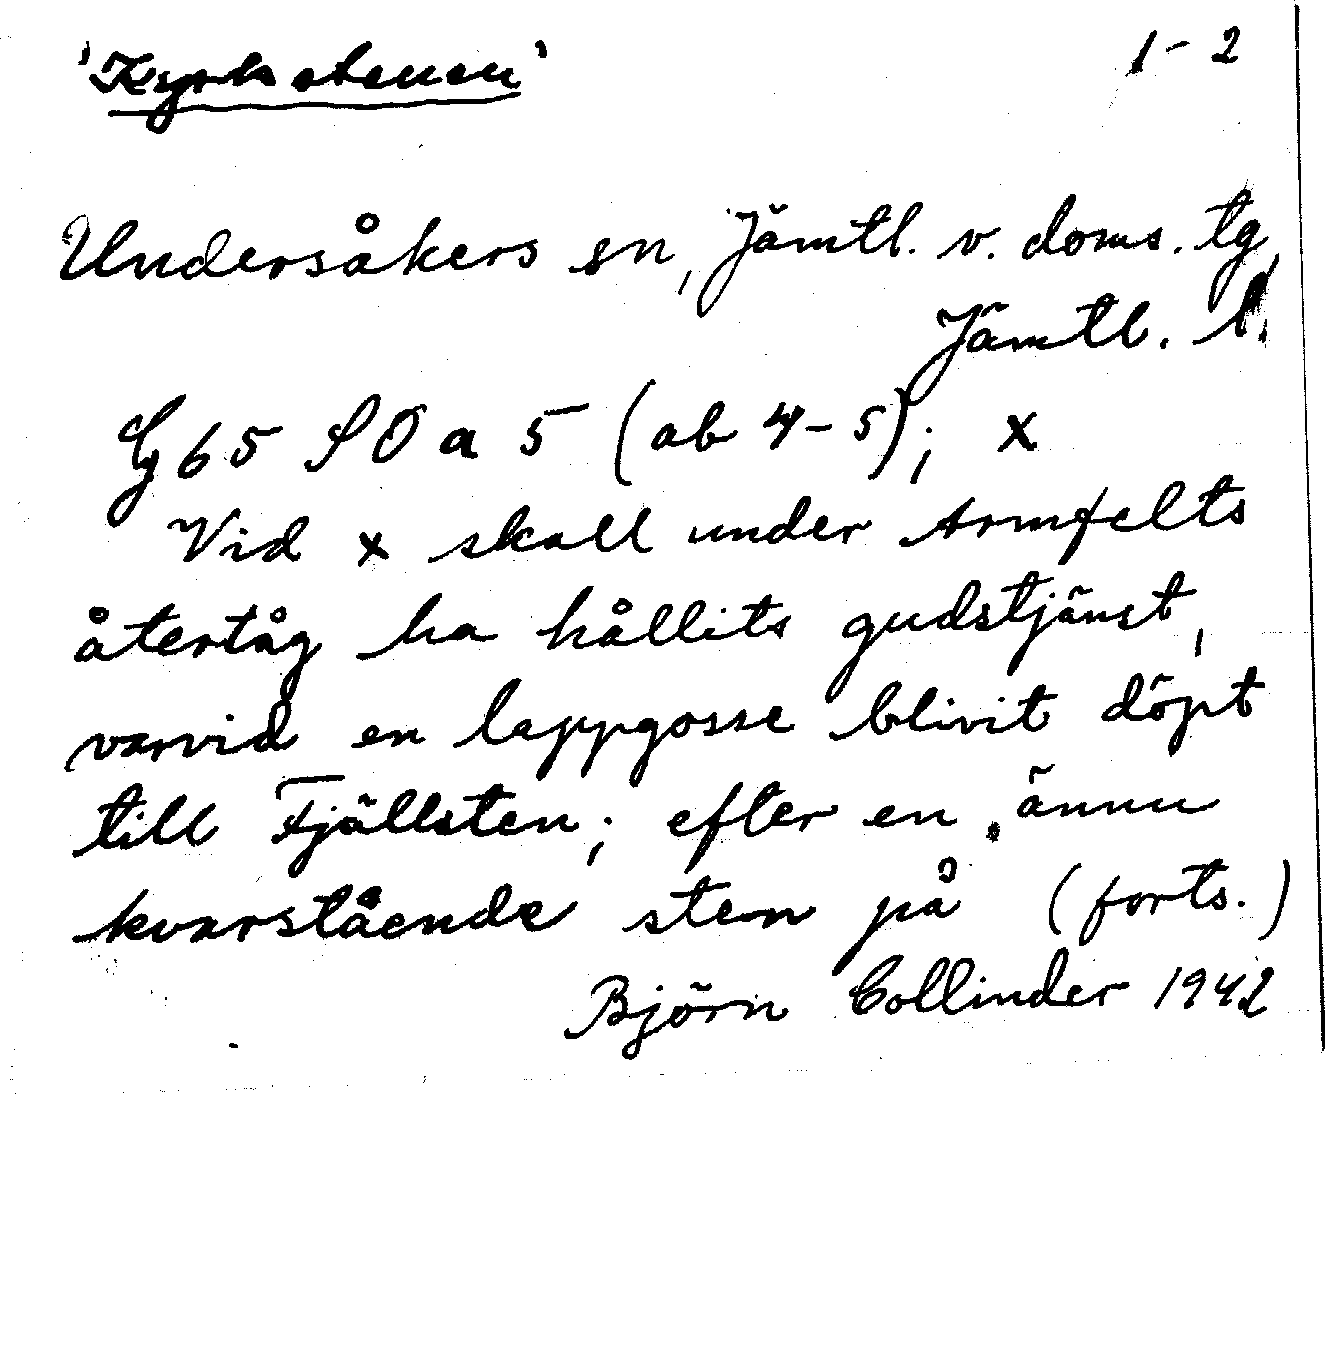 'Kyrkstenen' 1-2
Undersåkers sn, Jämtl. v. doms. tg,
Jämtl. l.
G 65 SO a 5 (ab 4-5); x
Vid x skall under Armfelts
återtåg ha hållits gudstjänst,
varvid en lappgosse blivit döpt
till Fjällsten; efter en ännu
kvarstående sten på (forts.)
Björn Collinder 1942